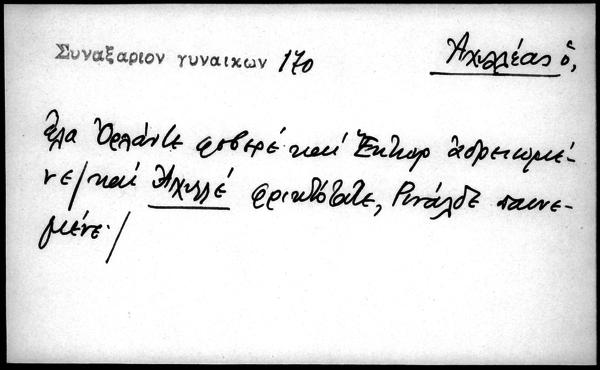 Συναξαριον γυναικων 170
Ἀχιλλέας ὁ,
ἔλα Ὀρλάντε φοβερέ καί Ἕκτορ ἀδρειωμέ-
νε/ καί Ἀχιλλέ φρικτότατε, Ρινάλδε παινε-
μένε./